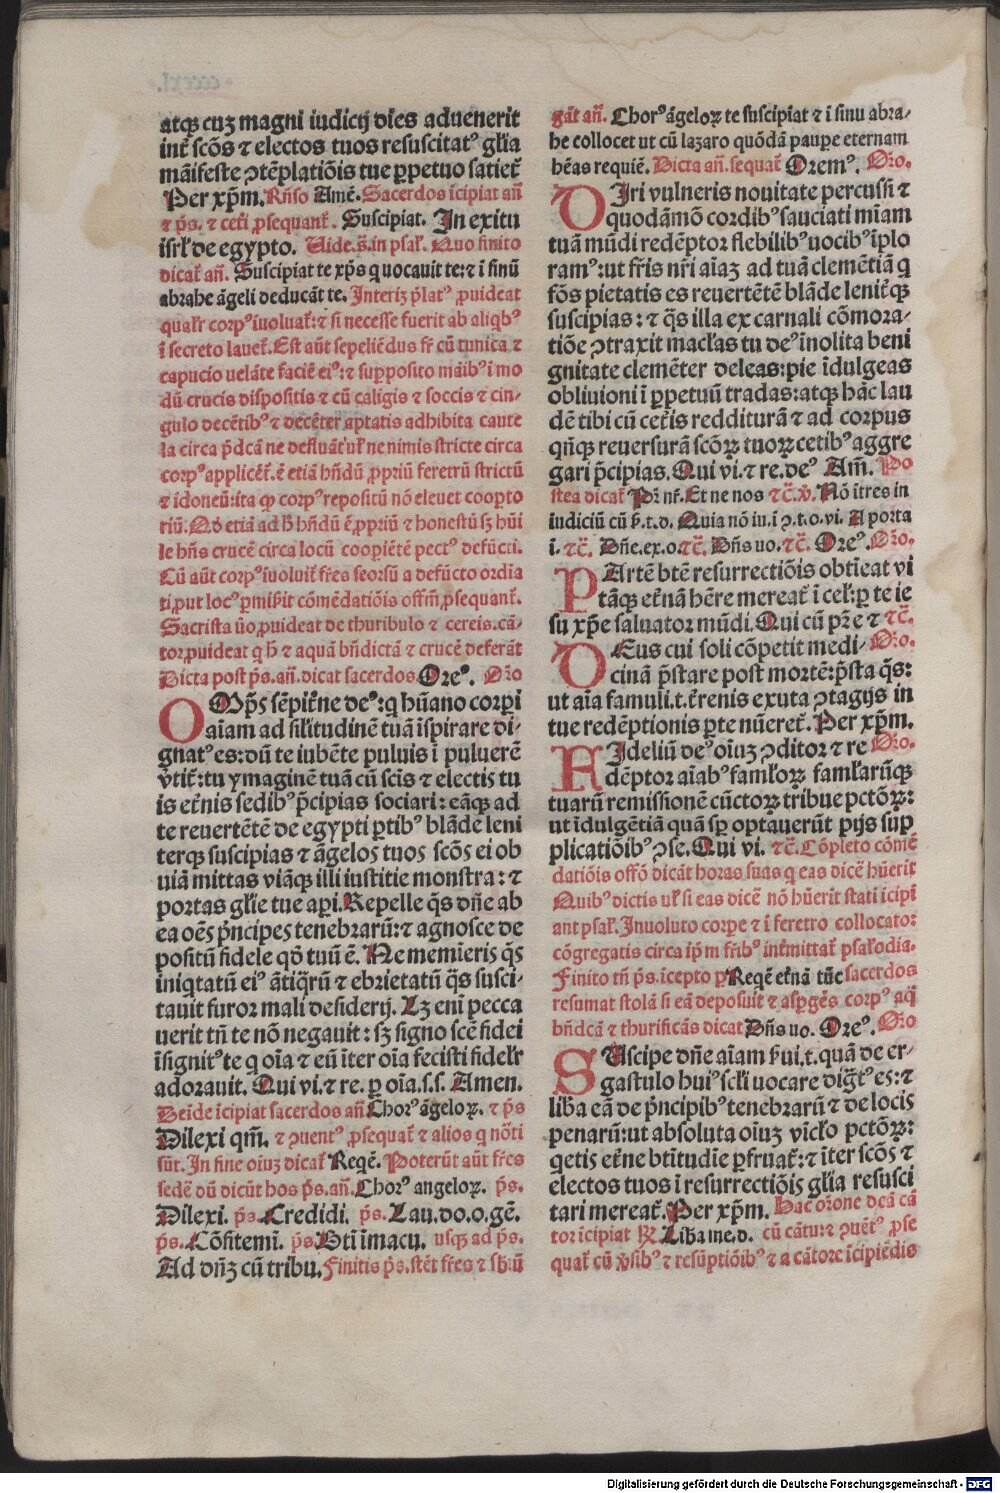 atqꝫ cuꝫ magni iudicij dies aduenerit
int̄ scōs ⁊ electos tuos resuscitatꝰ glīa
māifeste ꝯtēplatiōis tue ꝑpetuo satiet̄
Per xp̄m. Rn̄so Amē. Sacerdos īcipiat an̄
⁊ p̄s. ⁊ cet̄i ꝓsequant̄. Suscipiat. In exitu
isrl̄ de egypto. Uide. s̄. in psal̄. Quo finito
dicat̄ an̄. Suscipiat te xp̄s q uocauit te: ⁊ ī sinū
abrahe āgeli deducāt te. Interiꝫ p̄latꝰ ꝓuideat
qualr̄ corpꝰ īuoluat̄: ⁊ si necesse fuerit ab aliqbꝰ
ī secreto lauet̄. Est aūt sepeliēdus fr̄ cū tunica ⁊
capucio uelāte faciē eiꝰ: ⁊ supposito māibꝰ ī mo
dū crucis dispositis ⁊ cū caligis ⁊ soccis ⁊ cin-
gulo decētibꝰ ⁊ decēter aptatis adhibita caute
la circa p̄dcā ne defluāt ul̄ ne nimis stricte circa
corpꝰ applicēt̄. ē etiā hn̄dū ꝓpriū feretrū strictū
⁊ idoneū: ita ꝙ corpꝰ repositū nō eleuet coopto
riū. Ad etiā ad h̄ hn̄dū ē ꝓpriū ⁊ honestū sꝫ hūi
le hn̄s crucē circa locū coopiētē pectꝰ defūcti.
Cū aūt corpꝰ īuoluit̄ fr̄es seorsū a defūcto ordīa
ti, put locꝰ ꝑmiserit cōmēdatiōis offm̄ ꝓsequant̄.
Sacrista ūo ꝓuideat de thuribulo ⁊ cereis. cā-
tor ꝓuideat q h̄ ⁊ aquā bn̄dictā ⁊ crucē deferāt
Dicta post p̄s. an̄. dicat sacerdos. Oreꝰ. Oꝛ̄o
OMp̄s sēpit̄ne deꝰ: q hūano corpi
aīam ad sil̄itudinē tuā īspirare di-
gnatꝰ es: dū te iubēte puluis ī puluerē
v̄tit̄: tu ymaginē tuā cū scīs ⁊ electis tu
is et̄nis sedibꝰ p̄cipias sociari: eāqꝫ ad
te reuertētē de egypti ꝑtibꝰ blāde leni
terqꝫ suscipias ⁊ āgelos tuos scōs ei ob
uiā mittas viāqꝫ illi iustitie monstra: ⁊
portas gl̄ie tue apī. Repelle q̄s dn̄e ab
ea oēs p̄ncipes tenebrarū: ⁊ agnosce de
positū fidele qd̄ tuū ē. Ne memieris q̄s
iniqtatū eiꝰ ātiq̄rū ⁊ ebrietatū q̄s susci-
tauit furor mali desiderij. Lꝫ enī pecca
uerit tn̄ te nō negauit: sꝫ signo scē fidei
īsignitꝰ te q oīa ⁊ eū īter oīa fecisti fidelr̄
adorauit. Qui vi. ⁊ re. ꝑ oīa. s. s. Amen.
Deīde īcipiat sacerdos an̄ Chorꝰ āgeloꝝ. ⁊ p̄s
Dilexi qm̄. ⁊ ꝯuentꝰ ꝓsequat̄ ⁊ alios q nōti
sūt. In fine oīuꝫ dicat̄ Reqē. Poterūt aūt fr̄es
sedē dū dicūt hos p̄s. an̄. Chorꝰ angeloꝝ. p̄s.
Dilexi. p̄s. Credidi. p̄s. Lau. do. o. gē.
p̄s. Cōfitemī. p̄s. Btī imacu. usqꝫ ad p̄s.
Ad dn̄ꝫ cū tribu. Finitis p̄s. stēt fr̄es ⁊ sb̄ū
gāt̄ an̄. Chorꝰ āgeloꝝ te suscipiat ⁊ ī sinu abra-
he collocet ut cū lazaro quōdā paupe eternam
hēas requiē. Dicta an̄. sequat̄ Oremꝰ. Oꝛ̄o.
DIri vulneris nouitate percussi ⁊
quodāmō cordibꝰ sauciati mīam
tuā mūdi redēptor flebilibꝰ uocibꝰ īplo
ramꝰ: ut fr̄is nr̄i aīaꝫ ad tuā clemētiā q
fōs pietatis es reuertētē blāde lenit̄qꝫ
suscipias: ⁊ q̄s illa ex carnali cōmora-
tiōe ꝯtraxit macl̄as tu deꝰ īnolita beni
gnitate clemēter deleas: pie īdulgeas
obliuioni ī ꝑpetuū tradas: atqꝫ hāc lau
dē tibi cū cet̄is redditurā ⁊ ad corpus
qn̄qꝫ reuersurā scōꝝ tuoꝝ cetibꝰ aggre
gari p̄cipias. Qui vi. ⁊ re. deꝰ Am̄. Po
stea dicat̄ Pr̄ nr̄. Et ne nos ⁊c̄. v̄. Nō ītres in
iudiciū cū s̄. t. d. Quia nō iu. ī ꝯ. t. o. vi. A porta
ī. ⁊c̄. Dn̄e. ex. o. ⁊c̄. Dn̄s uo. ⁊c̄. Oreꝰ. Oꝛ̄o.
PArtē btē resurrectiōis obtīeat vi
tāqꝫ et̄nā hēre mereat̄ ī cel̄: ꝑ te ie
su xp̄e saluator mūdi. Qui cū pr̄e ⁊ ⁊c̄.
DEus cui soli cōpetit medi- Oꝛ̄o.
cinā p̄stare post mortē: p̄sta q̄s:
ut aīa famuli. t. t̄renis exuta ꝯtagijs in
tue redēptionis ꝑte nūeret̄. Per xp̄m.
FIdeliū deꝰ oīuꝫ ꝯditor ⁊ re Oꝛ̄o.
dēptor aīabꝰ faml̄oꝝ faml̄arūqꝫ
tuarū remissionē cūctoꝝ tribue pctōꝝ:
ut īdulgētiā quā sp̄ optauerūt pijs sup
plicatiōibꝰ ꝯse. Qui vi. ⁊c̄. Cōpleto cōmē
datiōis offō dicāt horas suas q eas dicē hūerīt
Quibꝰ dictis ul̄ si eas dicē nō hūerīt stati īcipi
ant psal̄. Inuoluto corpe ⁊ ī feretro collocato:
cōgregatis circa ip̄m fr̄ibꝰ int̄mittat̄ psal̄odia.
Finito tn̄ p̄s. īcepto p̄ Reqē et̄nā tūc sacerdos
resumat stolā si eā deposuit ⁊ aspgēs corpꝰ aq̄
bn̄dcā ⁊ thurificās dicat Dn̄s uo. Oreꝰ. Oꝛ̄o
SUscipe dn̄e aīam s̄ui. t. quā de er-
gastulo huiꝰ scl̄i uocare diḡtꝰ es: ⁊
lība eā de p̄ncipibꝰ tenebrarū ⁊ de locis
penarū: ut absoluta oīuꝫ vicl̄o pctōꝝ:
qetis et̄ne btītudīe ꝑfruat̄: ⁊ īter scōs ⁊
electos tuos ī resurrectiōis glīa resusci
tari mereat̄. Per xp̄m. Hac oꝛ̄one dcā cā
tor īcipiat ℟ Lība me. d. cū cātu: ⁊ ꝯuētꝰ ꝓse
quat̄ cū v̄sibꝰ ⁊ resūptiōibꝰ ⁊ a cātore īcipiēdis
Digitalisierung gefördert durch die Deutsche Forschungsgemeinschaft - DFG